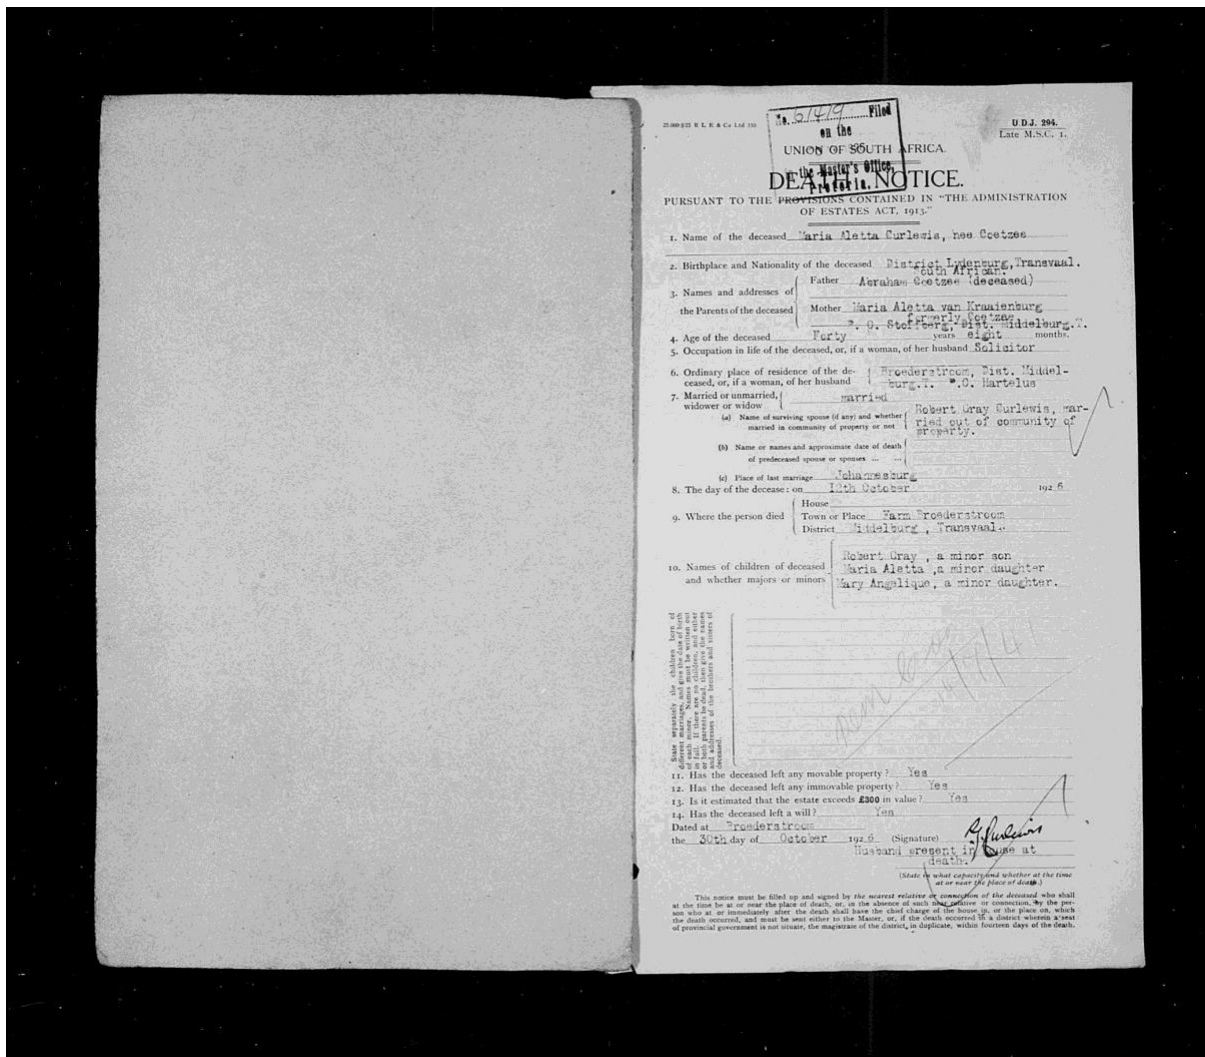 No. 61419 Filed
on the
in the Master's Office,
Pretoria.
U.D.J. 294.
Late M.S.C. 1.
UNION OF SOUTH AFRICA.
DEATH NOTICE.
PURSUANT TO THE PROVISIONS CONTAINED IN "THE ADMINISTRATION
OF ESTATES ACT, 1913."
1. Name of the deceased Maria Aletta Curlewis, nee Coetzee
2. Birthplace and Nationality of the deceased District Lydenburg, Transvaal.
South African.
3. Names and addresses of the Parents of the deceased
Father Abraham Coetzee (deceased)
Mother Maria Aletta van Kraaienburg
formerly Coetzee
P. O. Stoffberg, Dist. Middelburg.T.
4. Age of the deceased Forty years eight months.
5. Occupation in life of the deceased, or, if a woman, of her husband Solicitor
6. Ordinary place of residence of the de- Broederstroom, Dist. Middel-
ceased, or, if a woman, of her husband burg.T. P.O. Hartelus
7. Married or unmarried, married
widower or widow
(a) Name of surviving spouse (if any) and whether Robert Gray Curlewis, mar-
married in community of property or not ried out of community of
property.
(b) Name or names and approximate date of death
of predeceased spouse or spouses ... ...
(c) Place of last marriage Johannesburg
8. The day of the decease: on 12th October 1926
9. Where the person died
House
Town or Place Farm Broederstroom
District Middelburg , Transvaal.
10. Names of children of deceased
and whether majors or minors
Robert Gray , a minor son
Maria Aletta ,a minor daughter
Mary Angelique, a minor daughter.
State separately the children born of
different marriages, and give the date of birth
of each minor. Names must be written out
in full. If there are no children, and either
or both parents be dead, then give the names
and addresses of the brothers and sisters of
deceased.
11. Has the deceased left any movable property? Yes
12. Has the deceased left any immovable property? Yes
13. Is it estimated that the estate exceeds £300 in value? Yes
14. Has the deceased left a will? Yes
Dated at Broederstroom
the 30th day of October 1926 (Signature) R.G. Curlewis
Husband present in house at
death.
(State in what capacity and whether at the time
at or near the place of death.)
This notice must be filled up and signed by the nearest relative or connection of the deceased who shall
at the time be at or near the place of death, or, in the absence of such near relative or connection, by the per-
son who at or immediately after the death shall have the chief charge of the house in, or the place on, which
the death occurred, and must be sent either to the Master, or, if the death occurred in a district wherein a seat
of provincial government is not situate, the magistrate of the district, in duplicate, within fourteen days of the death.